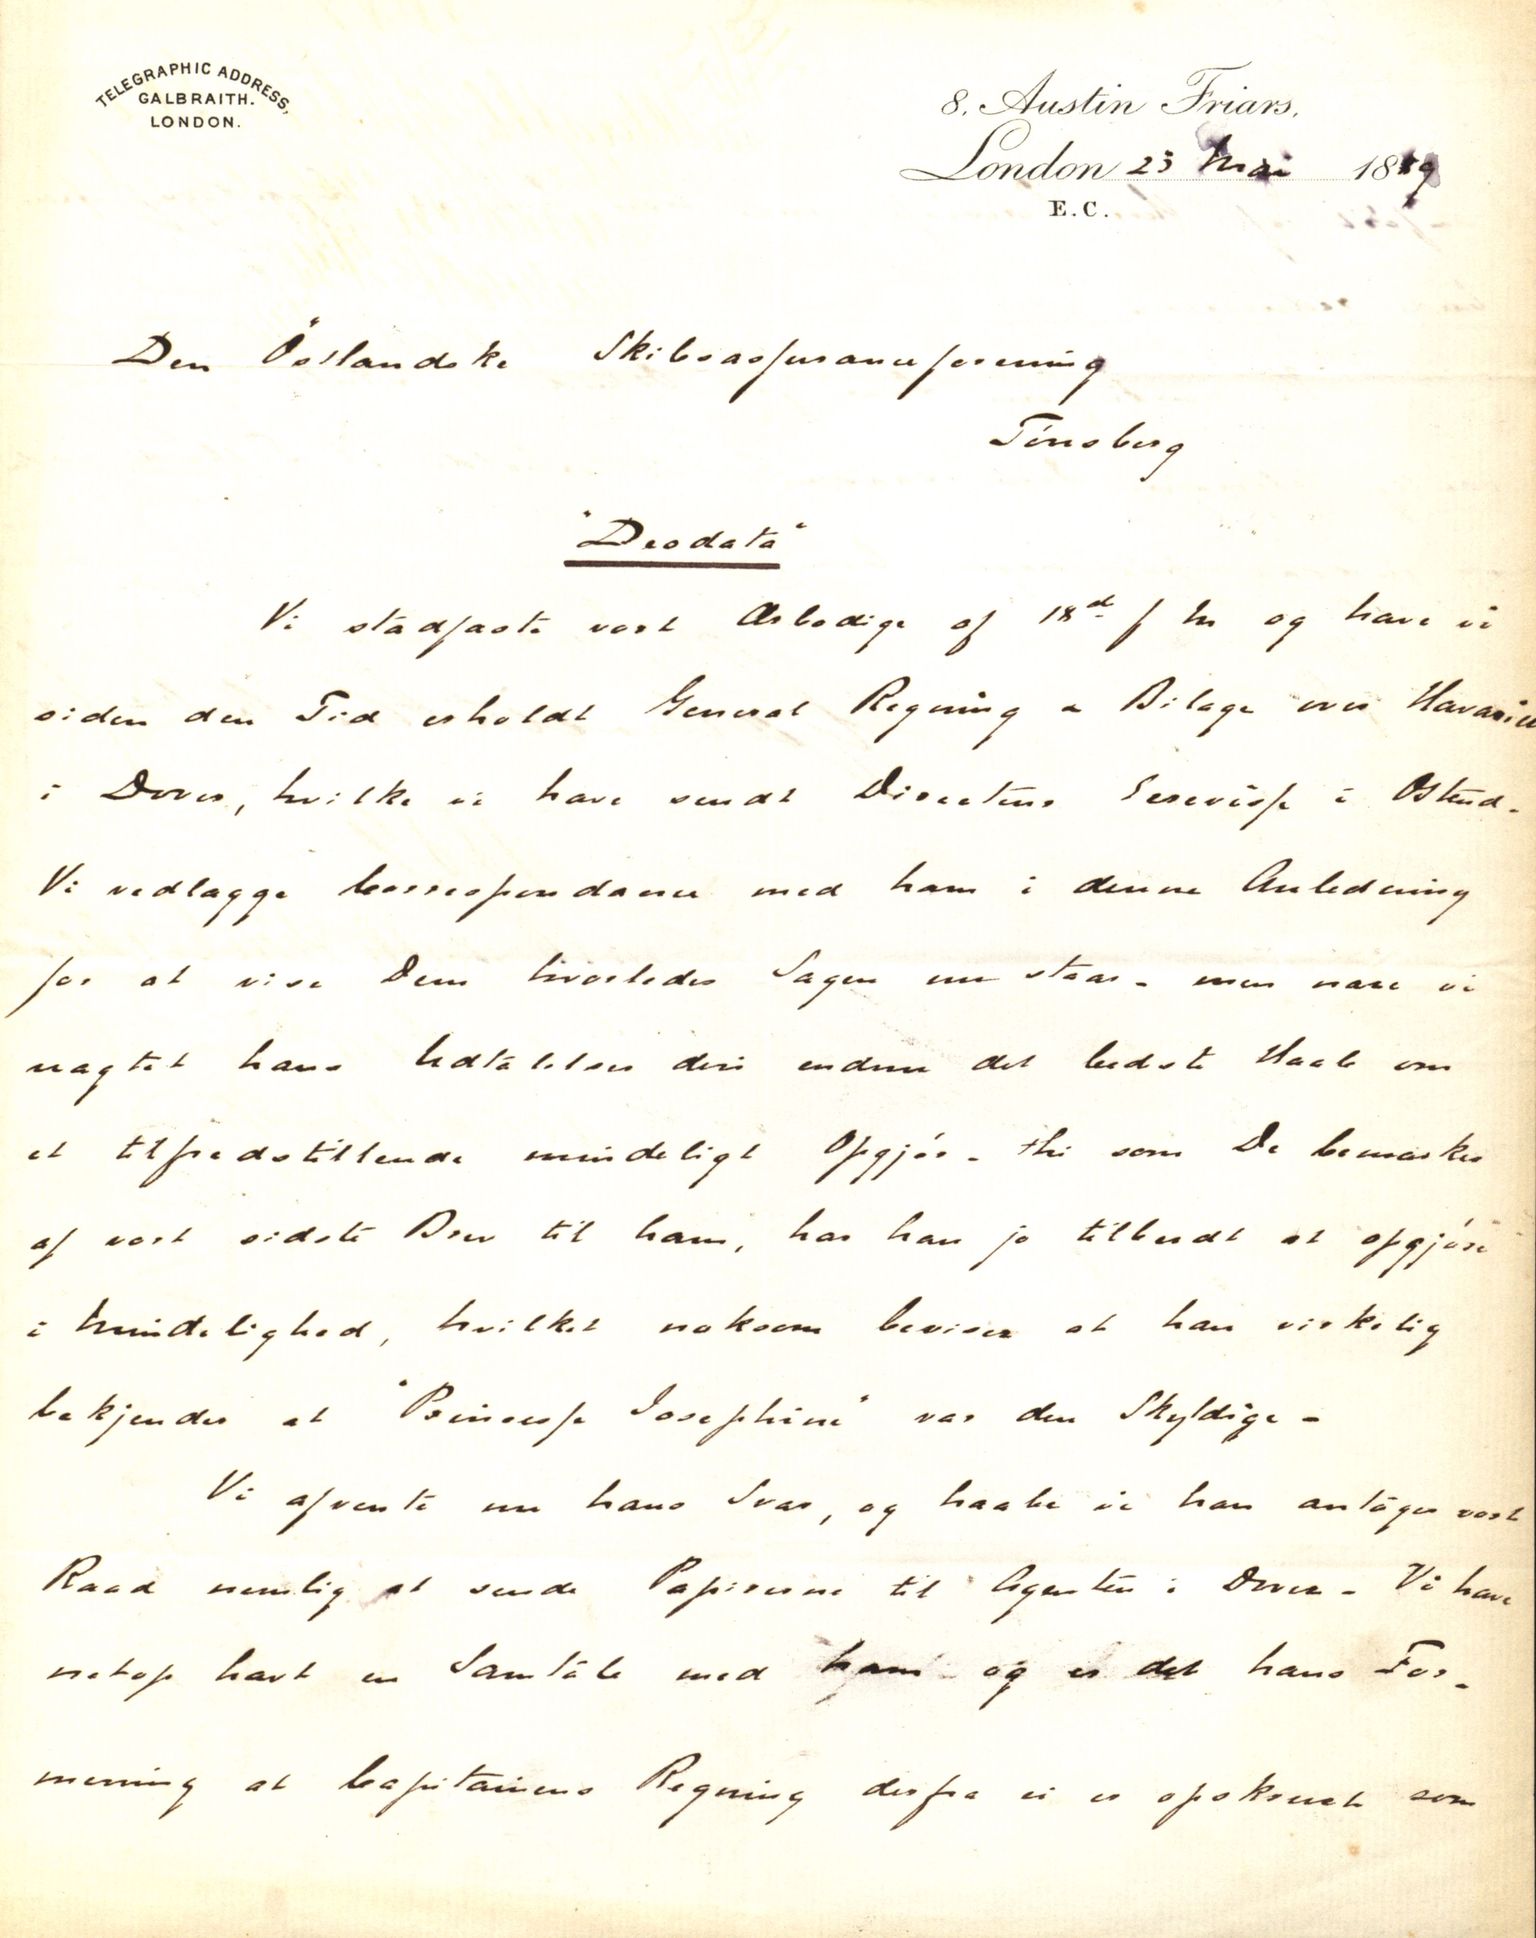 TELEGRAPHIC ADDRESS,
GALBRAITH.
LONDON.
8, Austin Friars,
London 23 Mai 1889
E.C.
Den Östlandske Skibsassuranceforening
Tönsberg
"Deodata"
Vi stadfæste vort Ærbødige af 18d f M og have vi
siden den Tid erholdt General Regning & Bilage over Havariet
i Dover, hvilke vi have sendt Directeur i Ostend.
Vi vedlægge Correspondance med ham i denne Anledning
for at vise Dem hvorledes Sagen nu staar. men nære vi
uagtet hans Udtalelser deri endnu det bedste Haab om
et tilfredstillende mindeligt Opgjør. thi som De bemærker
af vort sidste Brev til ham, har han jo tilbudt at opgjøre
i Mindelighed, hvilket noksom beviser at han virkelig
bekjender at "Princesse Josephine" var den Skyldige.
Vi afvente nu hans Svar, og haabe vi han antager vort
Raad nemlig at sende Papirerne til Agenten i Dover. Vi have
netop havt en Samtale med ham og er det hans For-
mening at Capitainens Regning derfra ei er opskruet som